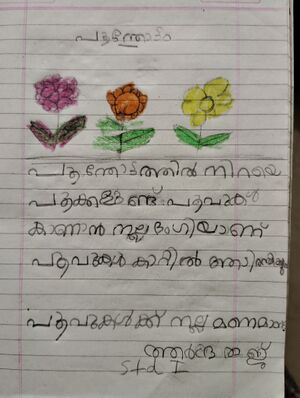 പൂന്തോട്ടം
പൂന്തോട്ടത്തിൽ നിറയെ
പൂക്കളുണ്ട് പൂവുകൾ
കാണാൻ നല്ല ഭംഗിയാണ്
പൂവുകൾ കാറ്റിൽ
പൂവുകൾക്ക് നല്ല
Std I